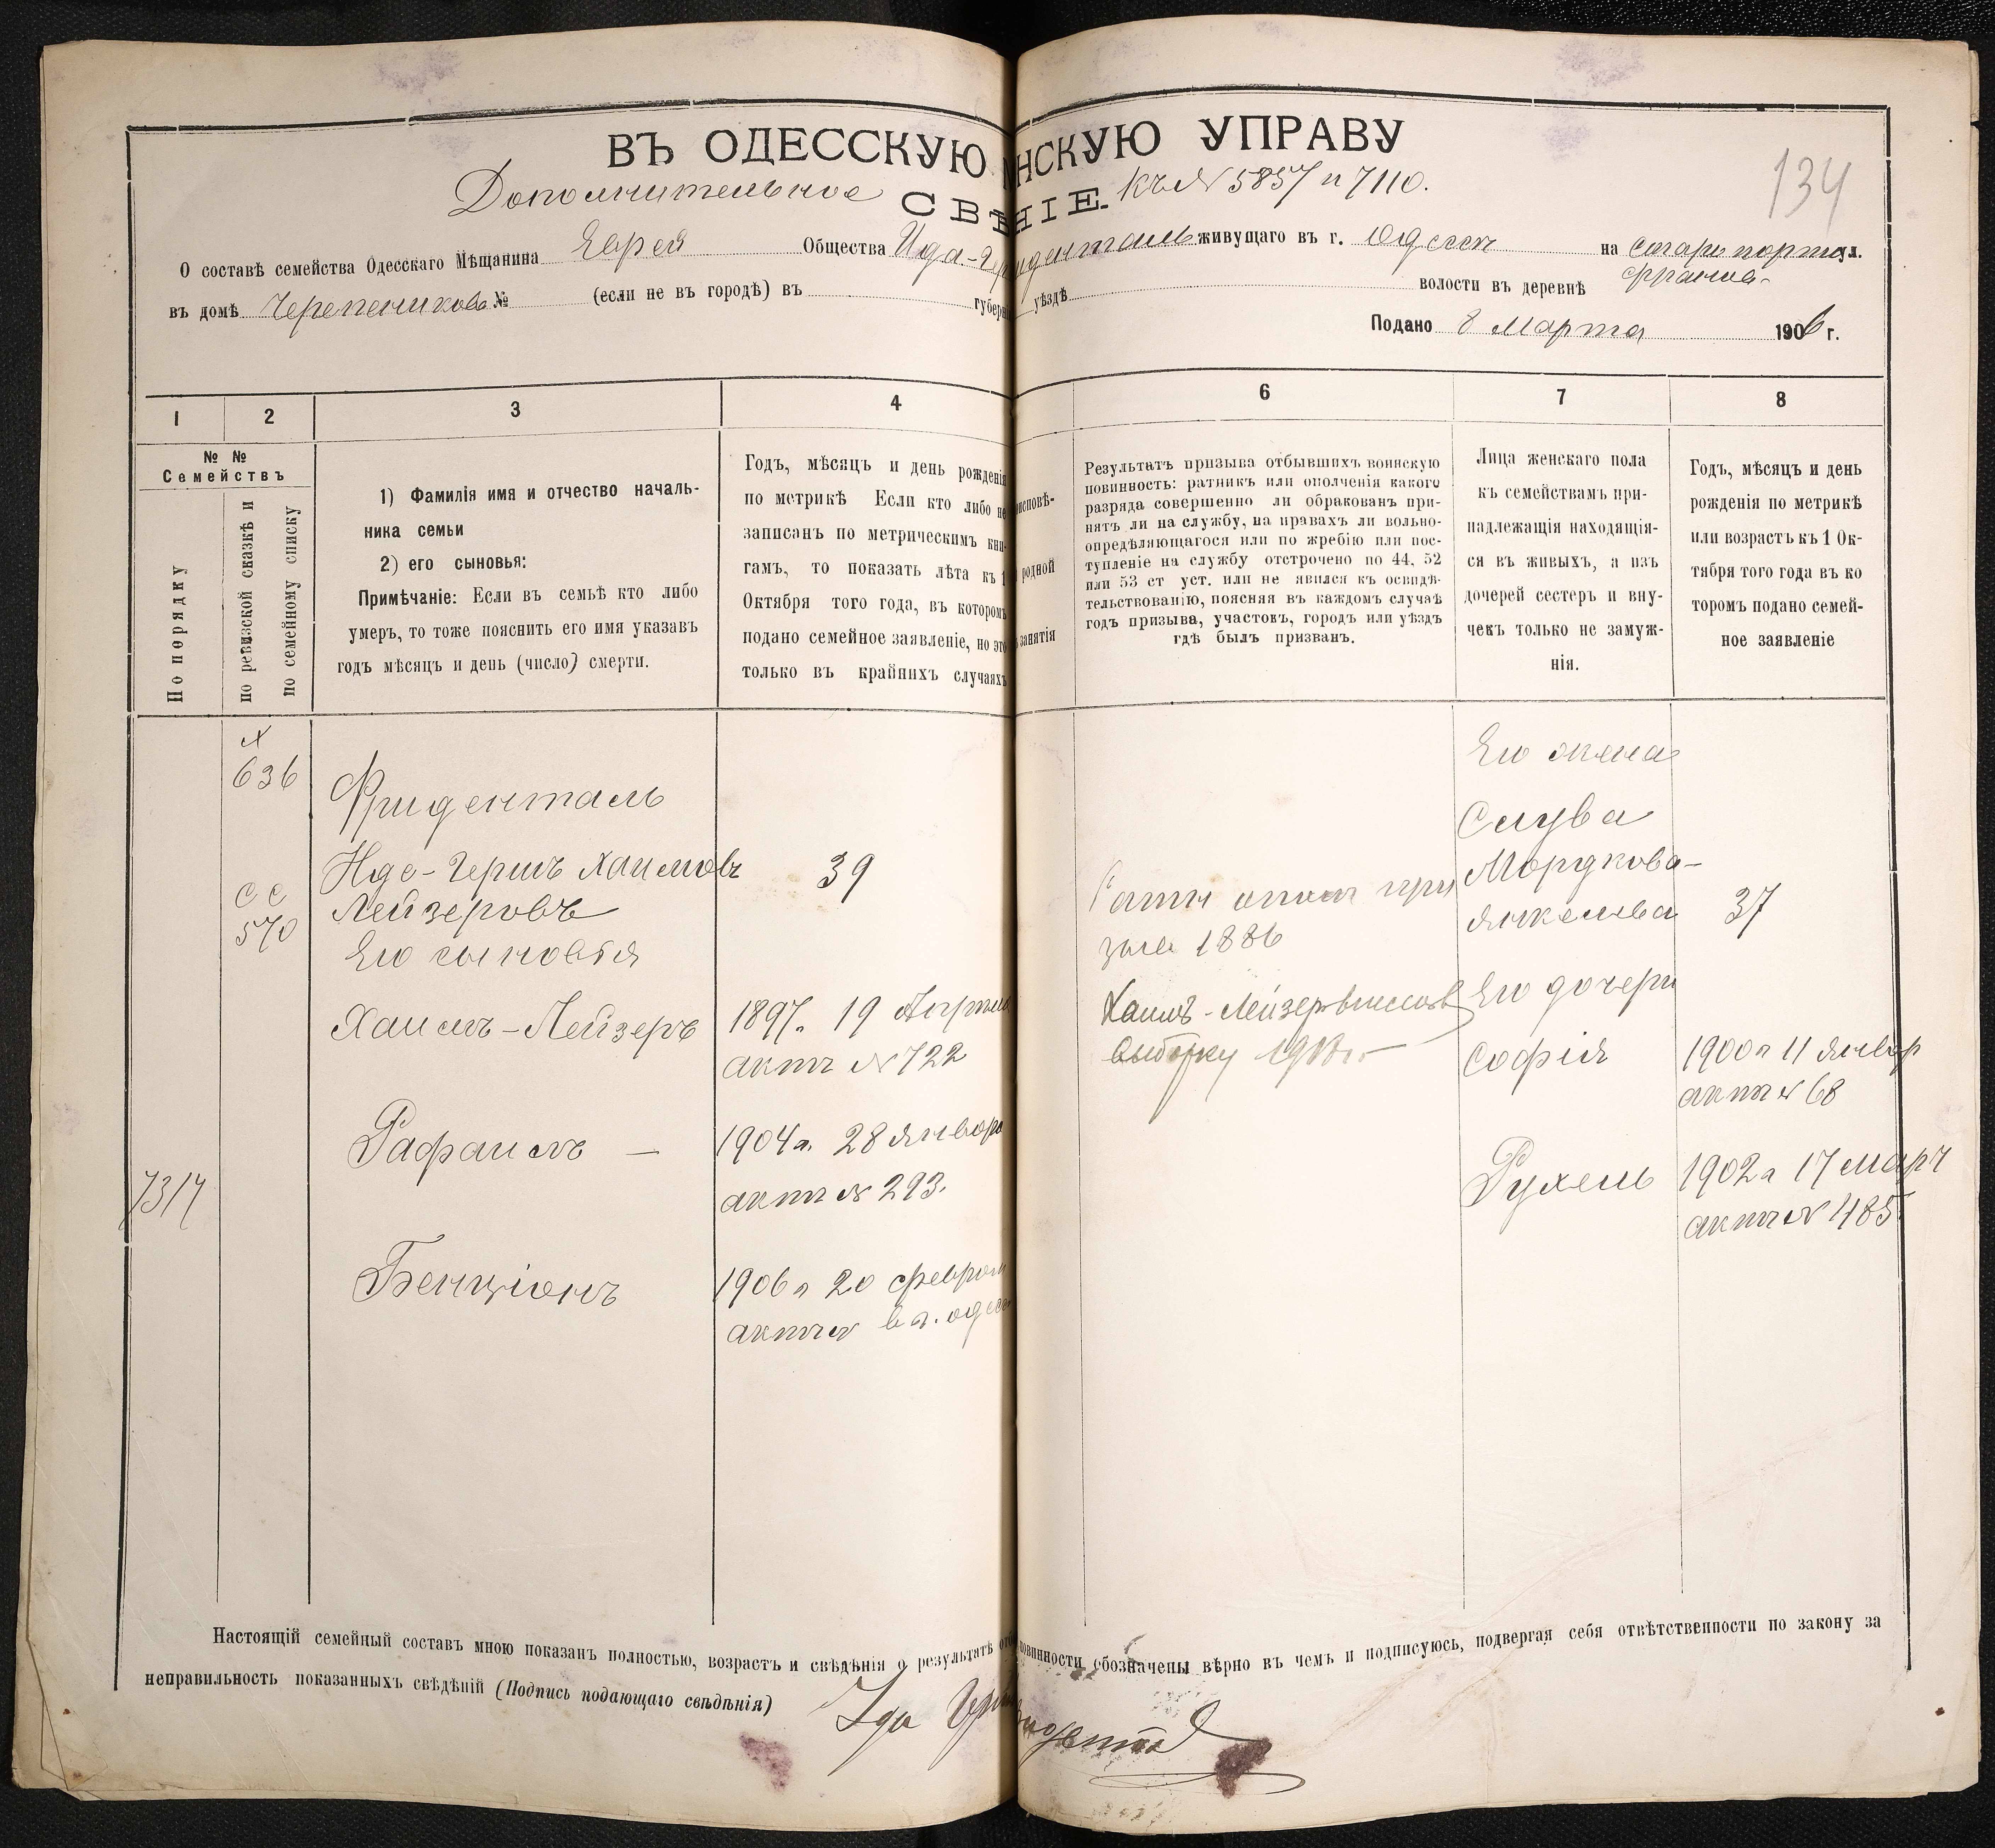 134
ВЪ ОДЕССКУЮ НСКУЮ УПРАВУ
Дополнительное СВѢНІЕ къ № 5857 и 7110.
О составѣ семейства Одесскаго Мѣщанина Еврея Общества Ида- живущаго въ г. Одессѣ на ул.
въ домѣ Черепенникова № (если не въ городѣ) въ губерн уѣздѣ волости въ деревнѣ
Подано 8 Марта 1906 г.
1
2
3
4
6
7
8
№ №
Семействъ
По порядку
по ревизской сказкѣ и
по семейному списку
1) Фамилія имя и отчество началь-
ника семьи
2) его сыновья:
Примѣчаніе: Если въ семьѣ кто либо
умеръ, то тоже пояснить его имя указавъ
годъ мѣсяцъ и день (число) смерти.
Годъ, мѣсяцъ и день рожденія
по метрикѣ Если кто либо не
записанъ по метрическимъ кни-
гамъ, то показать лѣта къ 1
Октября того года, въ которомъ
подано семейное заявленіе, но это
только въ крайнихъ случаяхъ
исповѣ-
родной
занятія
Результатъ призыва отбывшихъ воинскую
повинность: ратникъ или ополченія какого
разряда совершенно ли обракованъ при-
нятъ ли на службу, на правахъ ли вольно-
опредѣляющагося или по жребію или пос-
тупленіе на службу отстрочено по 44, 52
или 53 ст уст. или не явился къ освидѣ-
тельствованію, поясняя въ каждомъ случаѣ
годъ призыва, участокъ, городъ или уѣздъ
гдѣ былъ призванъ.
Лица женскаго пола
къ семействамъ при-
надлежащія находящія-
ся въ живыхъ, а изъ
дочерей сестеръ и вну-
чекъ только не замуж-
нія.
Годъ, мѣсяцъ и день
рожденія по метрикѣ
или возрастъ къ 1 Ок-
тября того года въ ко
торомъ подано семей-
ное заявленіе
№
636
Фриденталь
Идо-Гершъ Хаимовъ
Лейзеровъ
39
сс
570
Его сыновья
Хаимъ-Лейзеръ
1897г. 19 Апреля
актъ № 722
Рафаилъ —
1904г. 28 Января
актъ № 293.
7317
Бенціонъ
1906г 20 феврал
актъ № в г. Одес
Рат при
зыва 1886
Хаимъ-Лейзер
выборку
Его жена
Слува
Мордкова-
Янкелева
37
Его дочери
Софія
1900г 11 Январ
актъ № 68
Рухель
1902г 17 март
актъ № 485
Настоящій семейный составъ мною показанъ полностью, возрастъ и свѣдѣнія о результатѣ от повинности обозначены вѣрно въ чемъ и подписуюсь, подвергая себя отвѣтственности по закону за
неправильность показанныхъ свѣдѣній (Подпись подающаго свѣдѣнія)